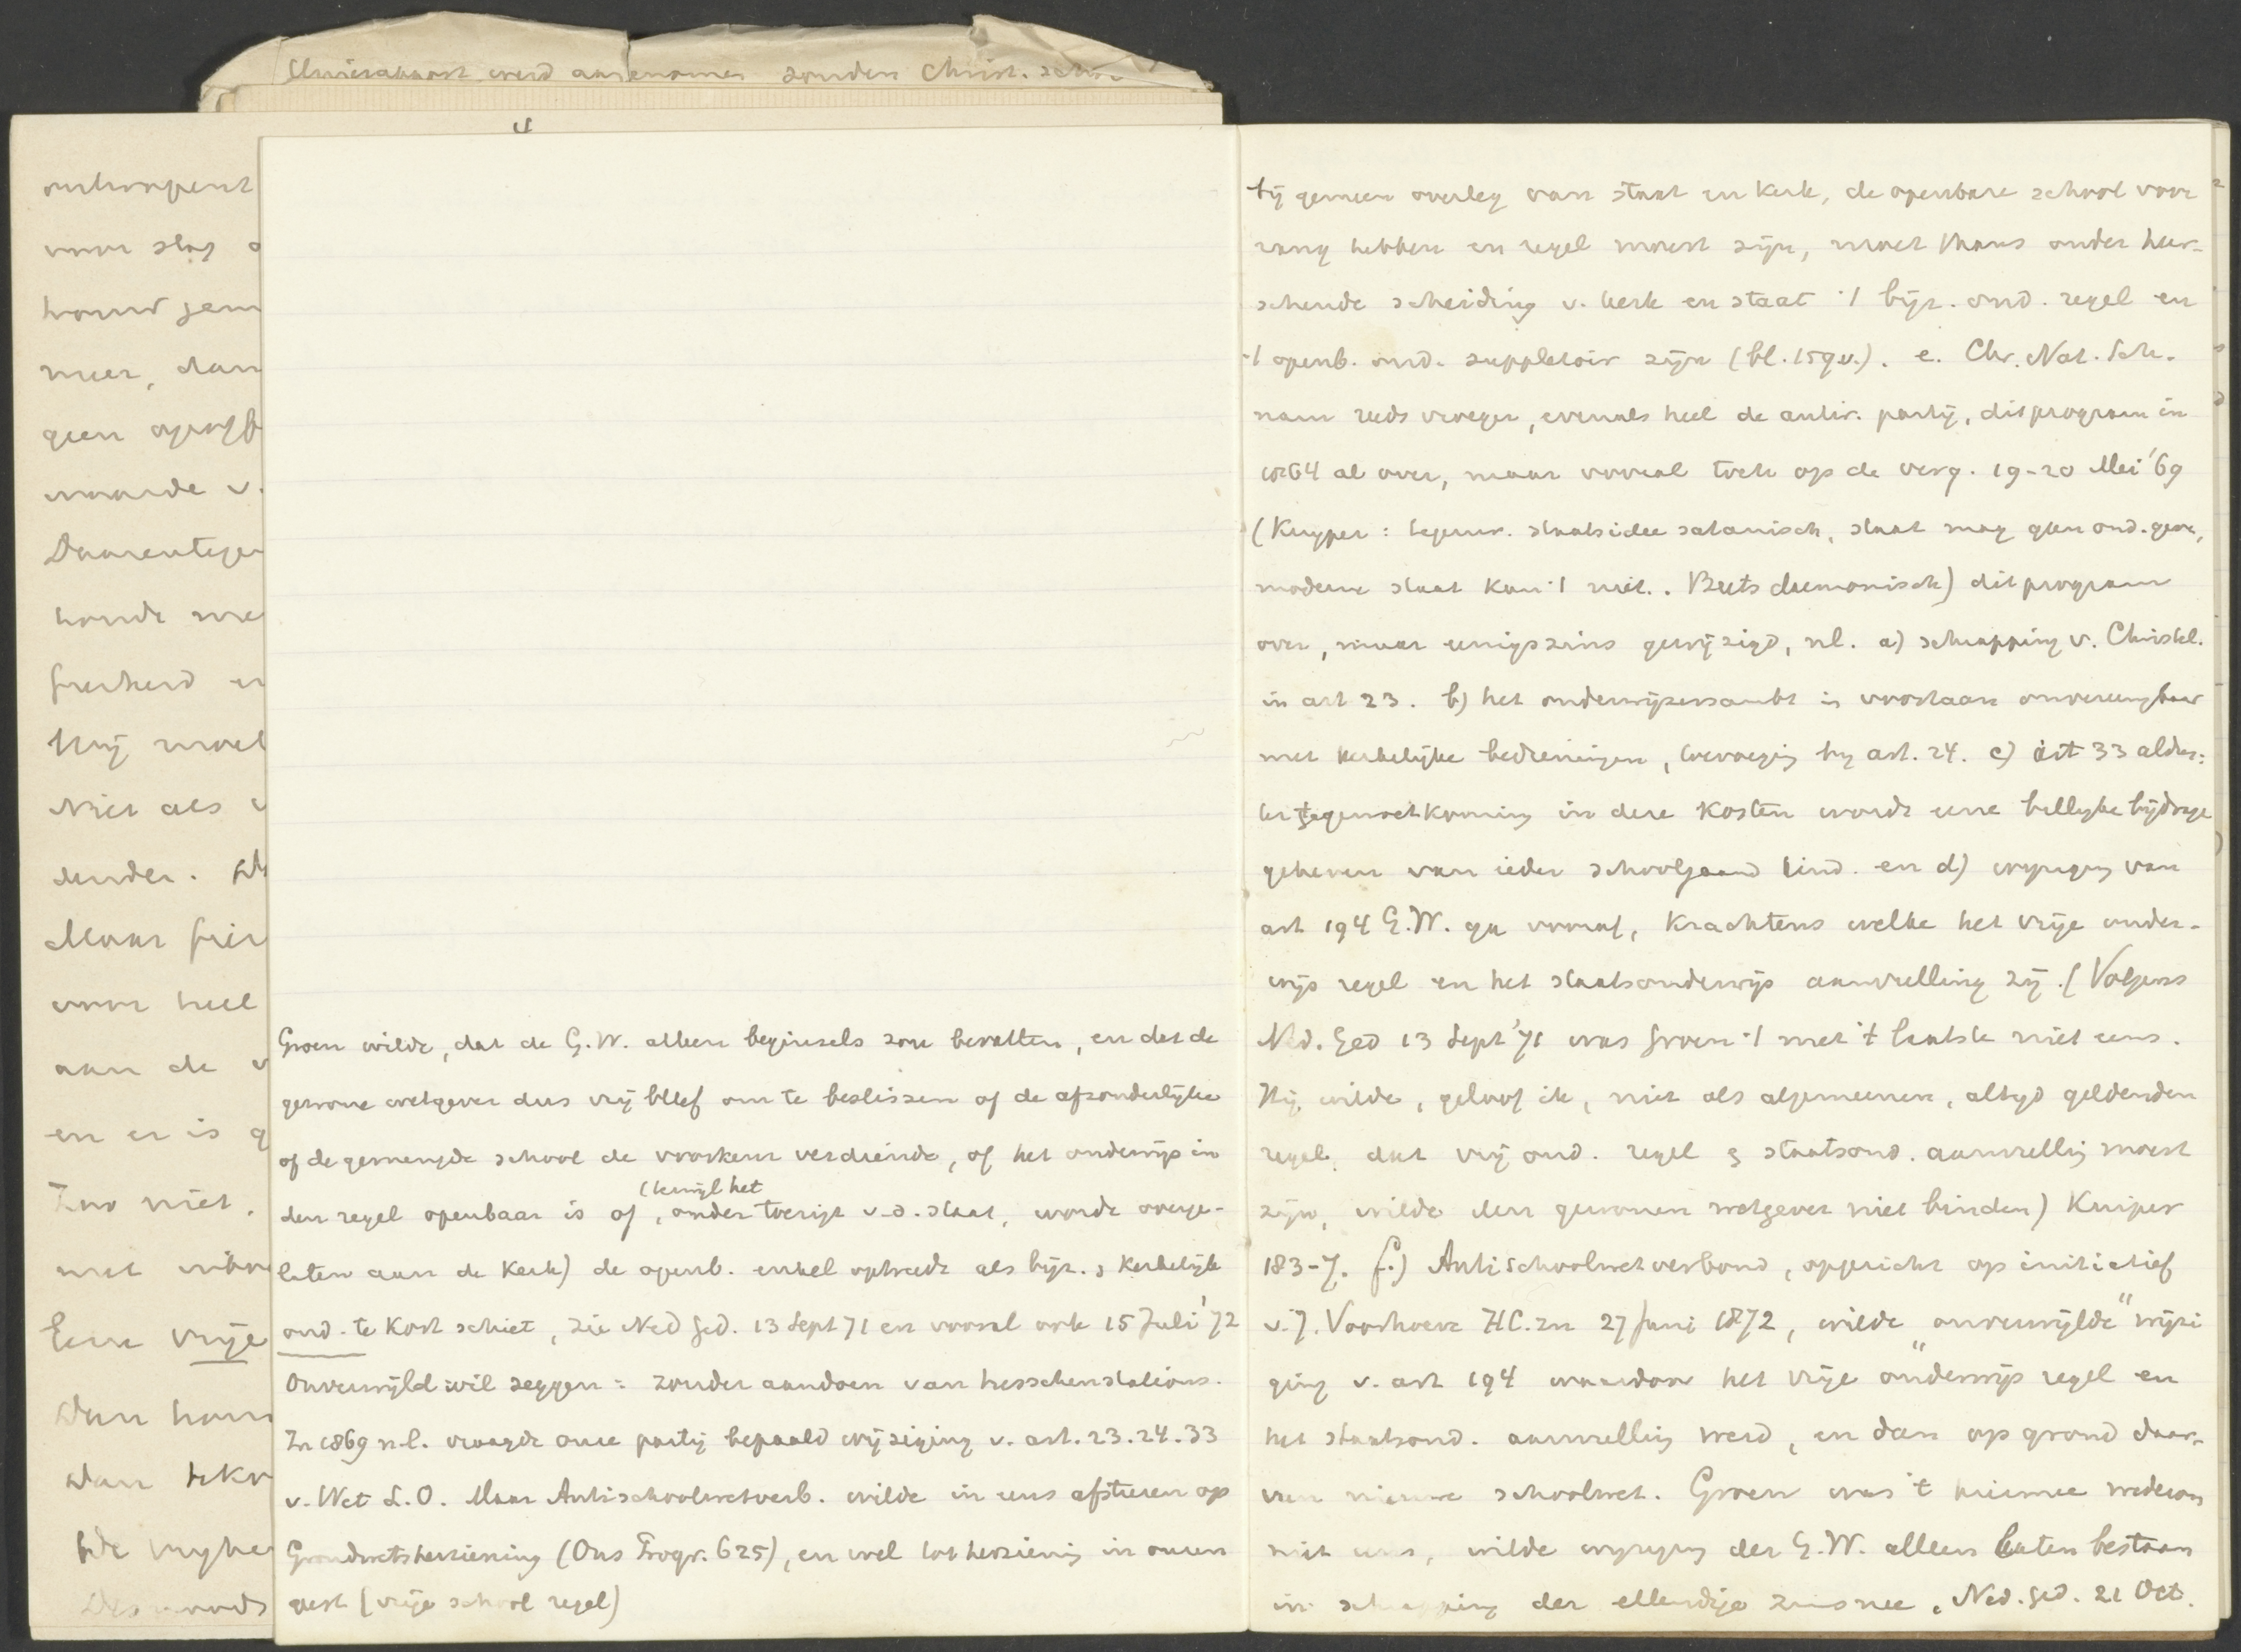 Unierapport werd aangenomen zonder Christ.
4
voor slag
meer, dan
geen
waarde v.
Daarentegen
Hij moet
Niet als
Maar
voor heel
aan de v
en er is g
Zoo niet.
met
Eene vrije
Dan
Dan
Groen wilde, dat de G.W. alleen beginsels zou bevatten, en dat de
gewone wetgever dus vrij bleef om te beslissen of de afzonderlijke
of de gemengde school de voorkeur verdiende, of het onderwijs in
den regel openbaar is of, (terwijl het onder toezigt v.d. staat, worde overge-
laten aan de Kerk) de openb. enkel optreedt als bijz. & Kerkelijk
ond. te kort schiet, zie Ned Ged. 13 Sept 71 en vooral ook 15 Juli '72
Onverwijld wil zeggen: zonder aandoen van tusschenstations.
In 1869 n.l. vraagde onze partij bepaald wijziging v. art. 23.24.33
v. Wet L.O. Maar Antischoolwetverb. wilde in eens afsturen op
Grondwetsherziening (Ons Progr. 625), en wel tot herziening in onzen
geest (vrije school regel)
bij gemeen overleg van staat en Kerk, de openbare school voor
rang hebben en regel moest zijn, moet thans onder heer-
schende scheiding v. kerk en staat 't bijz. ond. regel en
't openb. ond. suppletoir zijn (bl. 159 v.). e. Chr. Nat. Sch.
nam reeds vroeger, evenals heel de antir. partij, dit program in
1864 al over, maar vooral toch op de verg. 19-20 Mei '69
(Kuyper: tegenw. staatsidee satanisch, staat mag geen ond. geve,
moderne staat kan 't niet.. Beets daemonisch) dit program
over, maar eenigszins gewijzigd, nl. a) schrapping v. Christel.
in art 23. b) het onderwijzersambt is voortaan onvereenigbaar
met kerkelijke bedieningen, toevoeging bij art. 24. c) art 33 aldus:
ter tegemoetkoming in deze kosten wordt eene billijke bijdrage
geheven van ieder schoolgaand kind. en d) wijziging van
art 194 G.W. ga vooraf, krachtens welke het vrije onder-
wijs regel en het staatsonderwijs aanvulling zij. (Volgens
Ned. Ged 13 Sept '71 was Groen 't met 't laatste niet eens.
Hij wilde, geloof ik, niet als algemeenen, altijd geldenden
regel, dat vrij ond. regel & staatsond. aanvulling moest
zijn, wilde den gewonen wetgever niet binden) Kuiper
183-7. f.) Antischoolwetverbond, opgericht op initiatief
v. J. Voorhoeve HC.zn 27 Juni 1872, wilde „onverwijlde" wijzi
ging v. art 194 waardoor het vrije onderwijs regel en
het staatsond. aanvulling werd, en dan op grond daar-
van nieuwe schoolwet. Groen was 't hiermee wederom
niet eens, wilde wijziging der G.W. alleen laten bestaan
in schrapping der ellendige zinsnee, Ned. Ged. 21 Oct.